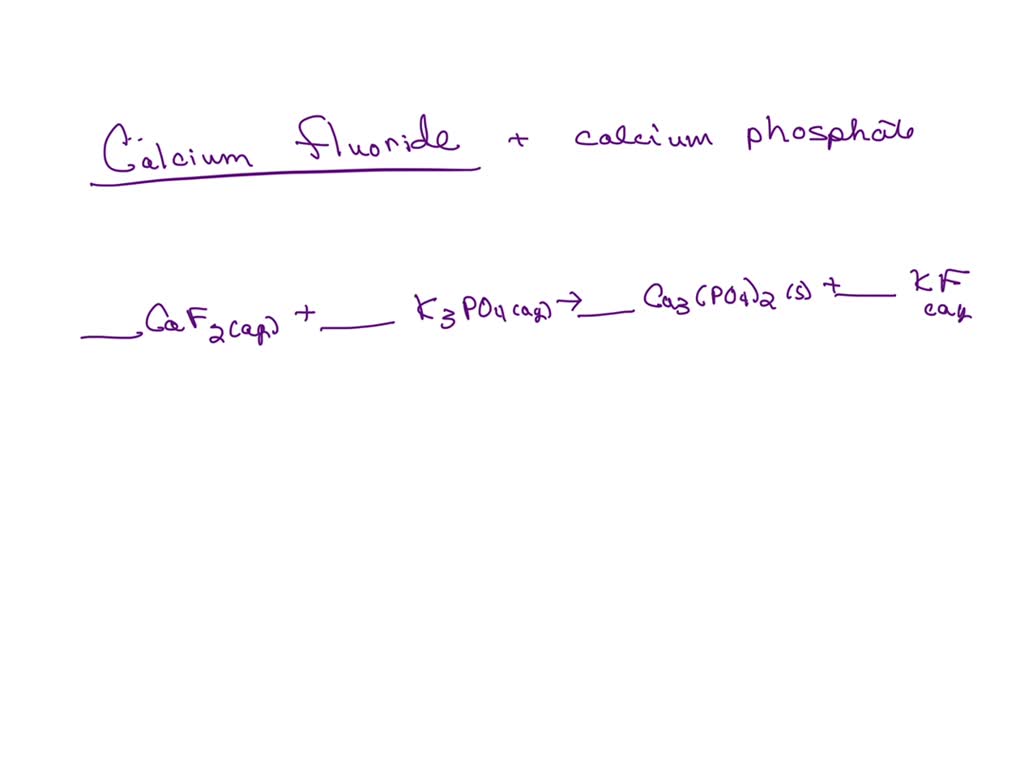 Calcium fluoride + calcium phosphate
__ CaF2(aq) + __ K3PO4(aq) → __ Ca3(PO4)2(s) + __ KF
(aq